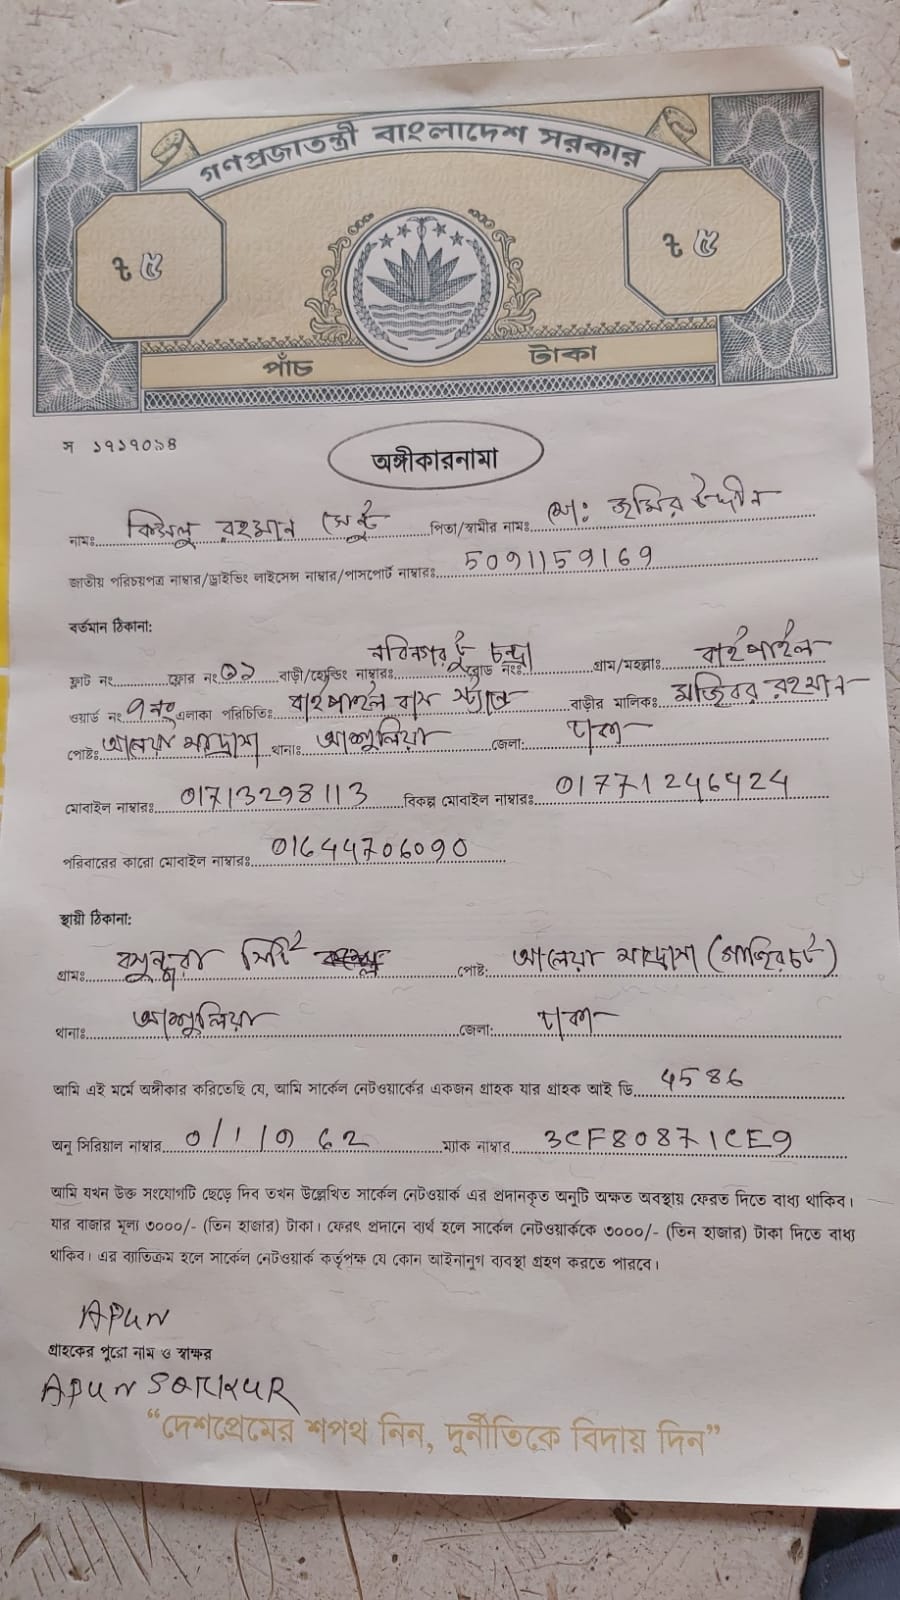 গণপ্রজাতন্ত্রী বাংলাদেশ সরকার
৳ ৫ ৳ ৫
পাঁচ টাকা
স ১৭১৭০৯৪
অঙ্গীকারনামা
নামঃ রহমান সেন্টু পিতা/স্বামীর নামঃ মোঃ জমির উদ্দীন
জাতীয় পরিচয়পত্র নাম্বার/ড্রাইভিং লাইসেন্স নাম্বার/পাসপোর্ট নাম্বারঃ 5091159169
বর্তমান ঠিকানা:
ফ্লাট নং ফ্লোর নং বাড়ী/হোল্ডিং নাম্বারঃ নবিনগর টু চন্দ্রা রোড নংঃ গ্রাম/মহল্লাঃ বাইপাইল
ওয়ার্ড নং ৭ নং এলাকা পরিচিতিঃ বাইপাইল বাস স্ট্যান্ড বাড়ীর মালিকঃ মজিবর রহমান
পোষ্টঃ আলেয়া মাদ্রাসা থানাঃ আশুলিয়া জেলা: ঢাকা
মোবাইল নাম্বারঃ 01713298113 বিকল্প মোবাইল নাম্বারঃ 01771246424
পরিবারের কারো মোবাইল নাম্বারঃ 01644706090
স্থায়ী ঠিকানা:
গ্রামঃ বসুন্ধরা সিটি পোষ্ট: আলেয়া মাদ্রাসা (গাজিরচট)
থানাঃ আশুলিয়া জেলা: ঢাকা
আমি এই মর্মে অঙ্গীকার করিতেছি যে, আমি সার্কেল নেটওয়ার্কের একজন গ্রাহক যার গ্রাহক আই ডি 4586
অনু সিরিয়াল নাম্বার ম্যাক নাম্বার 3CF80871CE9
আমি যখন উক্ত সংযোগটি ছেড়ে দিব তখন উল্লেখিত সার্কেল নেটওয়ার্ক এর প্রদানকৃত অনুটি অক্ষত অবস্থায় ফেরত দিতে বাধ্য থাকিব।
যার বাজার মূল্য ৩০০০/- (তিন হাজার) টাকা। ফেরৎ প্রদানে ব্যর্থ হলে সার্কেল নেটওয়ার্ককে ৩০০০/- (তিন হাজার) টাকা দিতে বাধ্য
থাকিব। এর ব্যতিক্রম হলে সার্কেল নেটওয়ার্ক কর্তৃপক্ষ যে কোন আইনানুগ ব্যবস্থা গ্রহণ করতে পারবে।
APUN
গ্রাহকের পুরো নাম ও স্বাক্ষর
APUN
“দেশপ্রেমের শপথ নিন, দুর্নীতিকে বিদায় দিন”